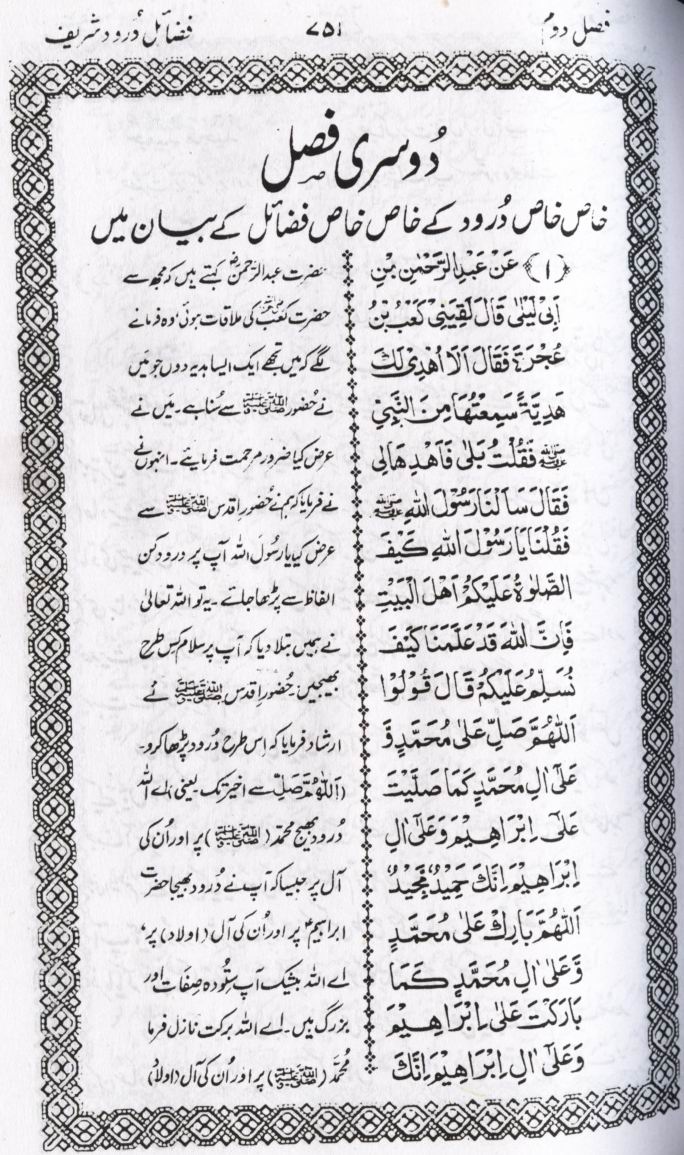 فصل دوم
۷۵۱
فضائل دُرود شریف
دُوسری فصل
خاص خاص دُرود کے خاص خاص فضائل کے بیان میں
﴿۱﴾ عَنْ عَبْدِ الرَّحْمٰنِ بْنِ
اَبِیْ لَیْلٰی قَالَ لَقِیَنِیْ کَعْبُ بْنُ
عُجْرَةَ فَقَالَ اَلَا اُهْدِیْ لَكَ
هَدِیَّةً سَمِعْتُهَا مِنَ النَّبِیِّ
ﷺ فَقُلْتُ بَلٰی فَاَهْدِ هَالِی
فَقَالَ سَاَلْنَا رَسُوْلَ اللّٰهِ ﷺ
فَقُلْنَا یَا رَسُوْلَ اللّٰهِ کَیْفَ
الصَّلٰوةُ عَلَیْکُمْ اَهْلَ الْبَیْتِ
فَاِنَّ اللّٰهَ قَدْ عَلَّمَنَا کَیْفَ
نُسَلِّمُ عَلَیْکُمْ قَالَ قُوْلُوْا
اَللّٰهُمَّ صَلِّ عَلٰی مُحَمَّدٍ وَّ
عَلٰۤی اٰلِ مُحَمَّدٍ کَمَا صَلَّیْتَ
عَلٰۤی اِبْرَاهِیْمَ وَ عَلٰۤی اٰلِ
اِبْرَاهِیْمَ اِنَّكَ حَمِیْدٌ مَّجِیْدٌ
اَللّٰهُمَّ بَارِكْ عَلٰی مُحَمَّدٍ
وَّ عَلٰۤی اٰلِ مُحَمَّدٍ کَمَا
بَارَکْتَ عَلٰۤی اِبْرَاهِیْمَ
وَ عَلٰۤی اٰلِ اِبْرَاهِیْمَ اِنَّكَ
حضرت عبدالرحمٰنؓ کہتے ہیں کہ مجھ سے
حضرت کعبؓ کی ملاقات ہوئی وہ فرمانے
لگے کہ میں تجھے ایک ایسا ہدیہ دوں جو میں
نے حُضور ﷺ سے سُنا ہے۔ میں نے
عرض کیا ضرور مرحمت فرمائیے۔ انہوں نے
نے فرمایا کہ ہم نے حُضورِ اقدس ﷺ سے
عرض کیا یا رسُولَ اللہ آپ پر درود کن
الفاظ سے پڑھا جائے۔ یہ تو اللہ تعالیٰ
نے ہمیں بتلا دیا کہ آپ پر سلام کس طرح
بھیجیں۔ حُضورِ اقدس ﷺ نے
ارشاد فرمایا کہ اِس طرح دُرود پڑھا کرو۔
(اَللّٰهُمَّ صَلِّ سے اخیر تک۔ یعنی) اے اللہ
دُرود بھیج محمّد (ﷺ) پر اور اُن کی
آل پر جیسا کہ آپ نے دُرود بھیجا حضرت
ابراہیمؑ پر اور اُن کی آل (اولاد) پر،
اے اللہ بیشک آپ ستُودہ صِفات اور
بزرگ ہیں۔ اے اللہ برکت نازل فرما
مُحمَّد (ﷺ) پر اور اُن کی آل (اولاد)